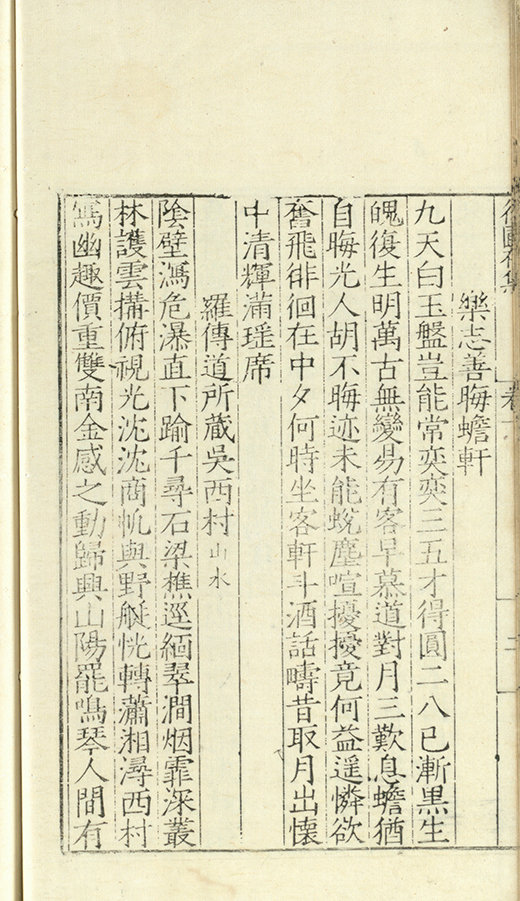 卷十
二
樂志善晦蟾軒
九天白玉盤豈能常奕奕三五才得圓二八已漸黑生
魄復生明萬古無變易有客早慕道對月三歎息蟾猶
自晦光人胡不晦迹未能蛻塵喧擾擾竟何益遥憐欲
奮飛徘徊在中夕何時坐客軒斗酒話疇昔取月出懷
中清輝滿瑶席
羅傳道所藏吳西村山水
陰壁瀉危瀑直下踰千尋石梁樵逕緬翠澗烟霏深叢
林護雲搆俯視光沈沈商帆與野艇恍轉瀟湘潯西村
寫幽趣價重雙南金感之動歸興山陽罷鳴琴人間有